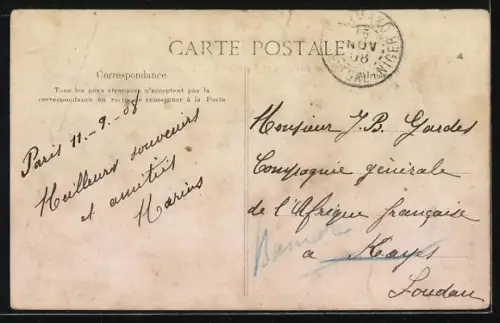 CARTE POSTALE
Correspondance
Tous les pays étrangers n'acceptent pas la
correspondance au recto se renseigner à la Poste
NOV
08
NIGER
Paris 11-9-08
Meilleurs souvenirs
et amitiés
Marius
Monsieur J. B. Gardes
Compagnie générale
de l'Afrique française
à Kayes
Soudan